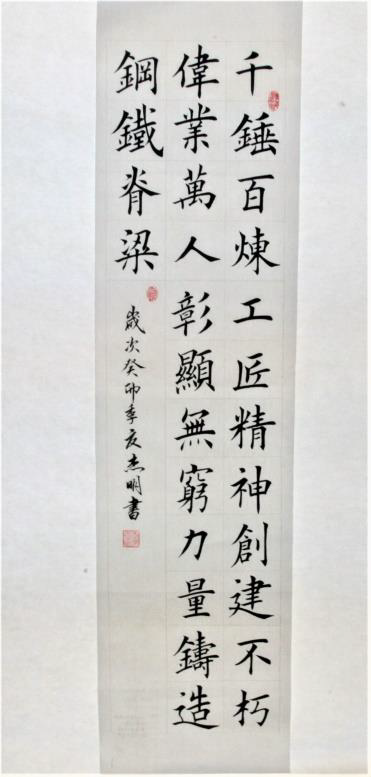 千錘百煉工匠精神創建不朽
偉業萬人彰顯無窮力量鑄造
鋼鐵脊梁
歲次癸卯季夏杰明書